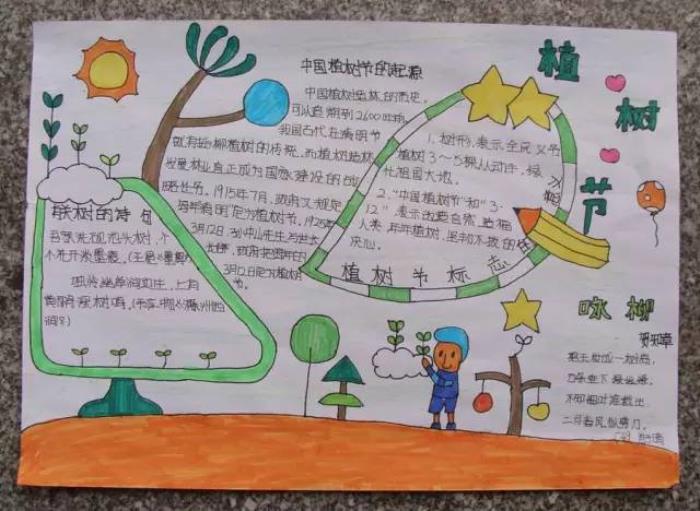 植树节
中国植树节的起源
中国植树造林的历史,
可以追溯到2600年前,
我国古代在清明节
就有插柳植树的传统,而植树造林
发展林业真正成为国家建设的
1915年7月,政府又规定
每年清明定为植树节。
3月12日,孙中山先生与世长
政府把每年的
3月12日定为植树
节。
1.树形,表示全民义务
植树3~5棵人人动手,绿
化祖国大地。
2."中国植树节"和"3·
12",表示改造自然,造福
人类,年年植树,坚韧不拔的
决心。
植树节标志
有关树的诗句
吾家洗砚池头树,个
个花开淡墨痕。(王冕《墨梅》
咏柳
贺知章
碧玉妆成一树高,
万条垂下绿丝绦。
不知细叶谁裁出,
二月春风似剪刀。